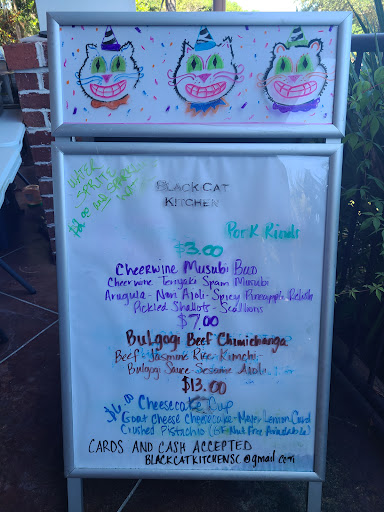 BLACK CAT
KITCHEN
WATER
$2.00 AND
Pork Rinds
$3.00
Cheerwine Musubi Bao
Cheerwine Teriyaki Spam Musubi
Arugula - Nori Aioli - Spicy Pineapple Relish
Pickled Shallots - Scallions
$7.00
Bulgogi Beef Chimichanga
Beef, Jasmine Rice, Kimchi
Bulgogi Sauce - Sesame Aioli
$13.00
$6.00 Cheesecake Cup
Goat Cheese Cheesecake - Meyer Lemon Curd
Crushed Pistachio (GF Nut Free Available)
CARDS AND CASH ACCEPTED
BLACKCATKITCHENSC@gmail.com